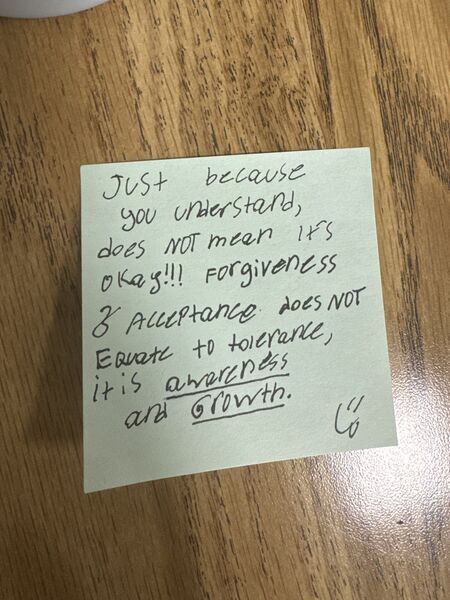 Just because
you understand,
does NOT mean it's
okay!!! Forgiveness
& Acceptance does NOT
Equate to tolerance,
it is awareness
and Growth.